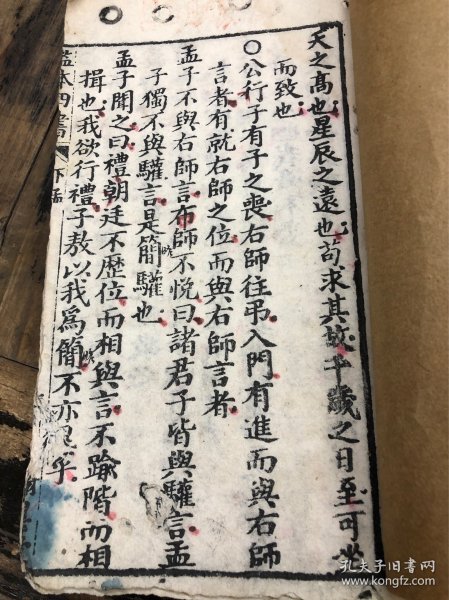 天之高也星辰之遠也苟求其故千歲之日至可坐
而致也
○公行子有子之喪右師往弔入門有進而與右師
言者有就右師之位而與右師言者
孟子不與右師言右師不悅曰諸君子皆與驩言孟
子獨不與驩言是簡驩也
孟子聞之曰禮朝廷不歷位而相與言不踰階而相
揖也我欲行禮子敖以我為簡不亦異乎
監本四書 下孟
孔夫子旧书网
www.kongfz.com